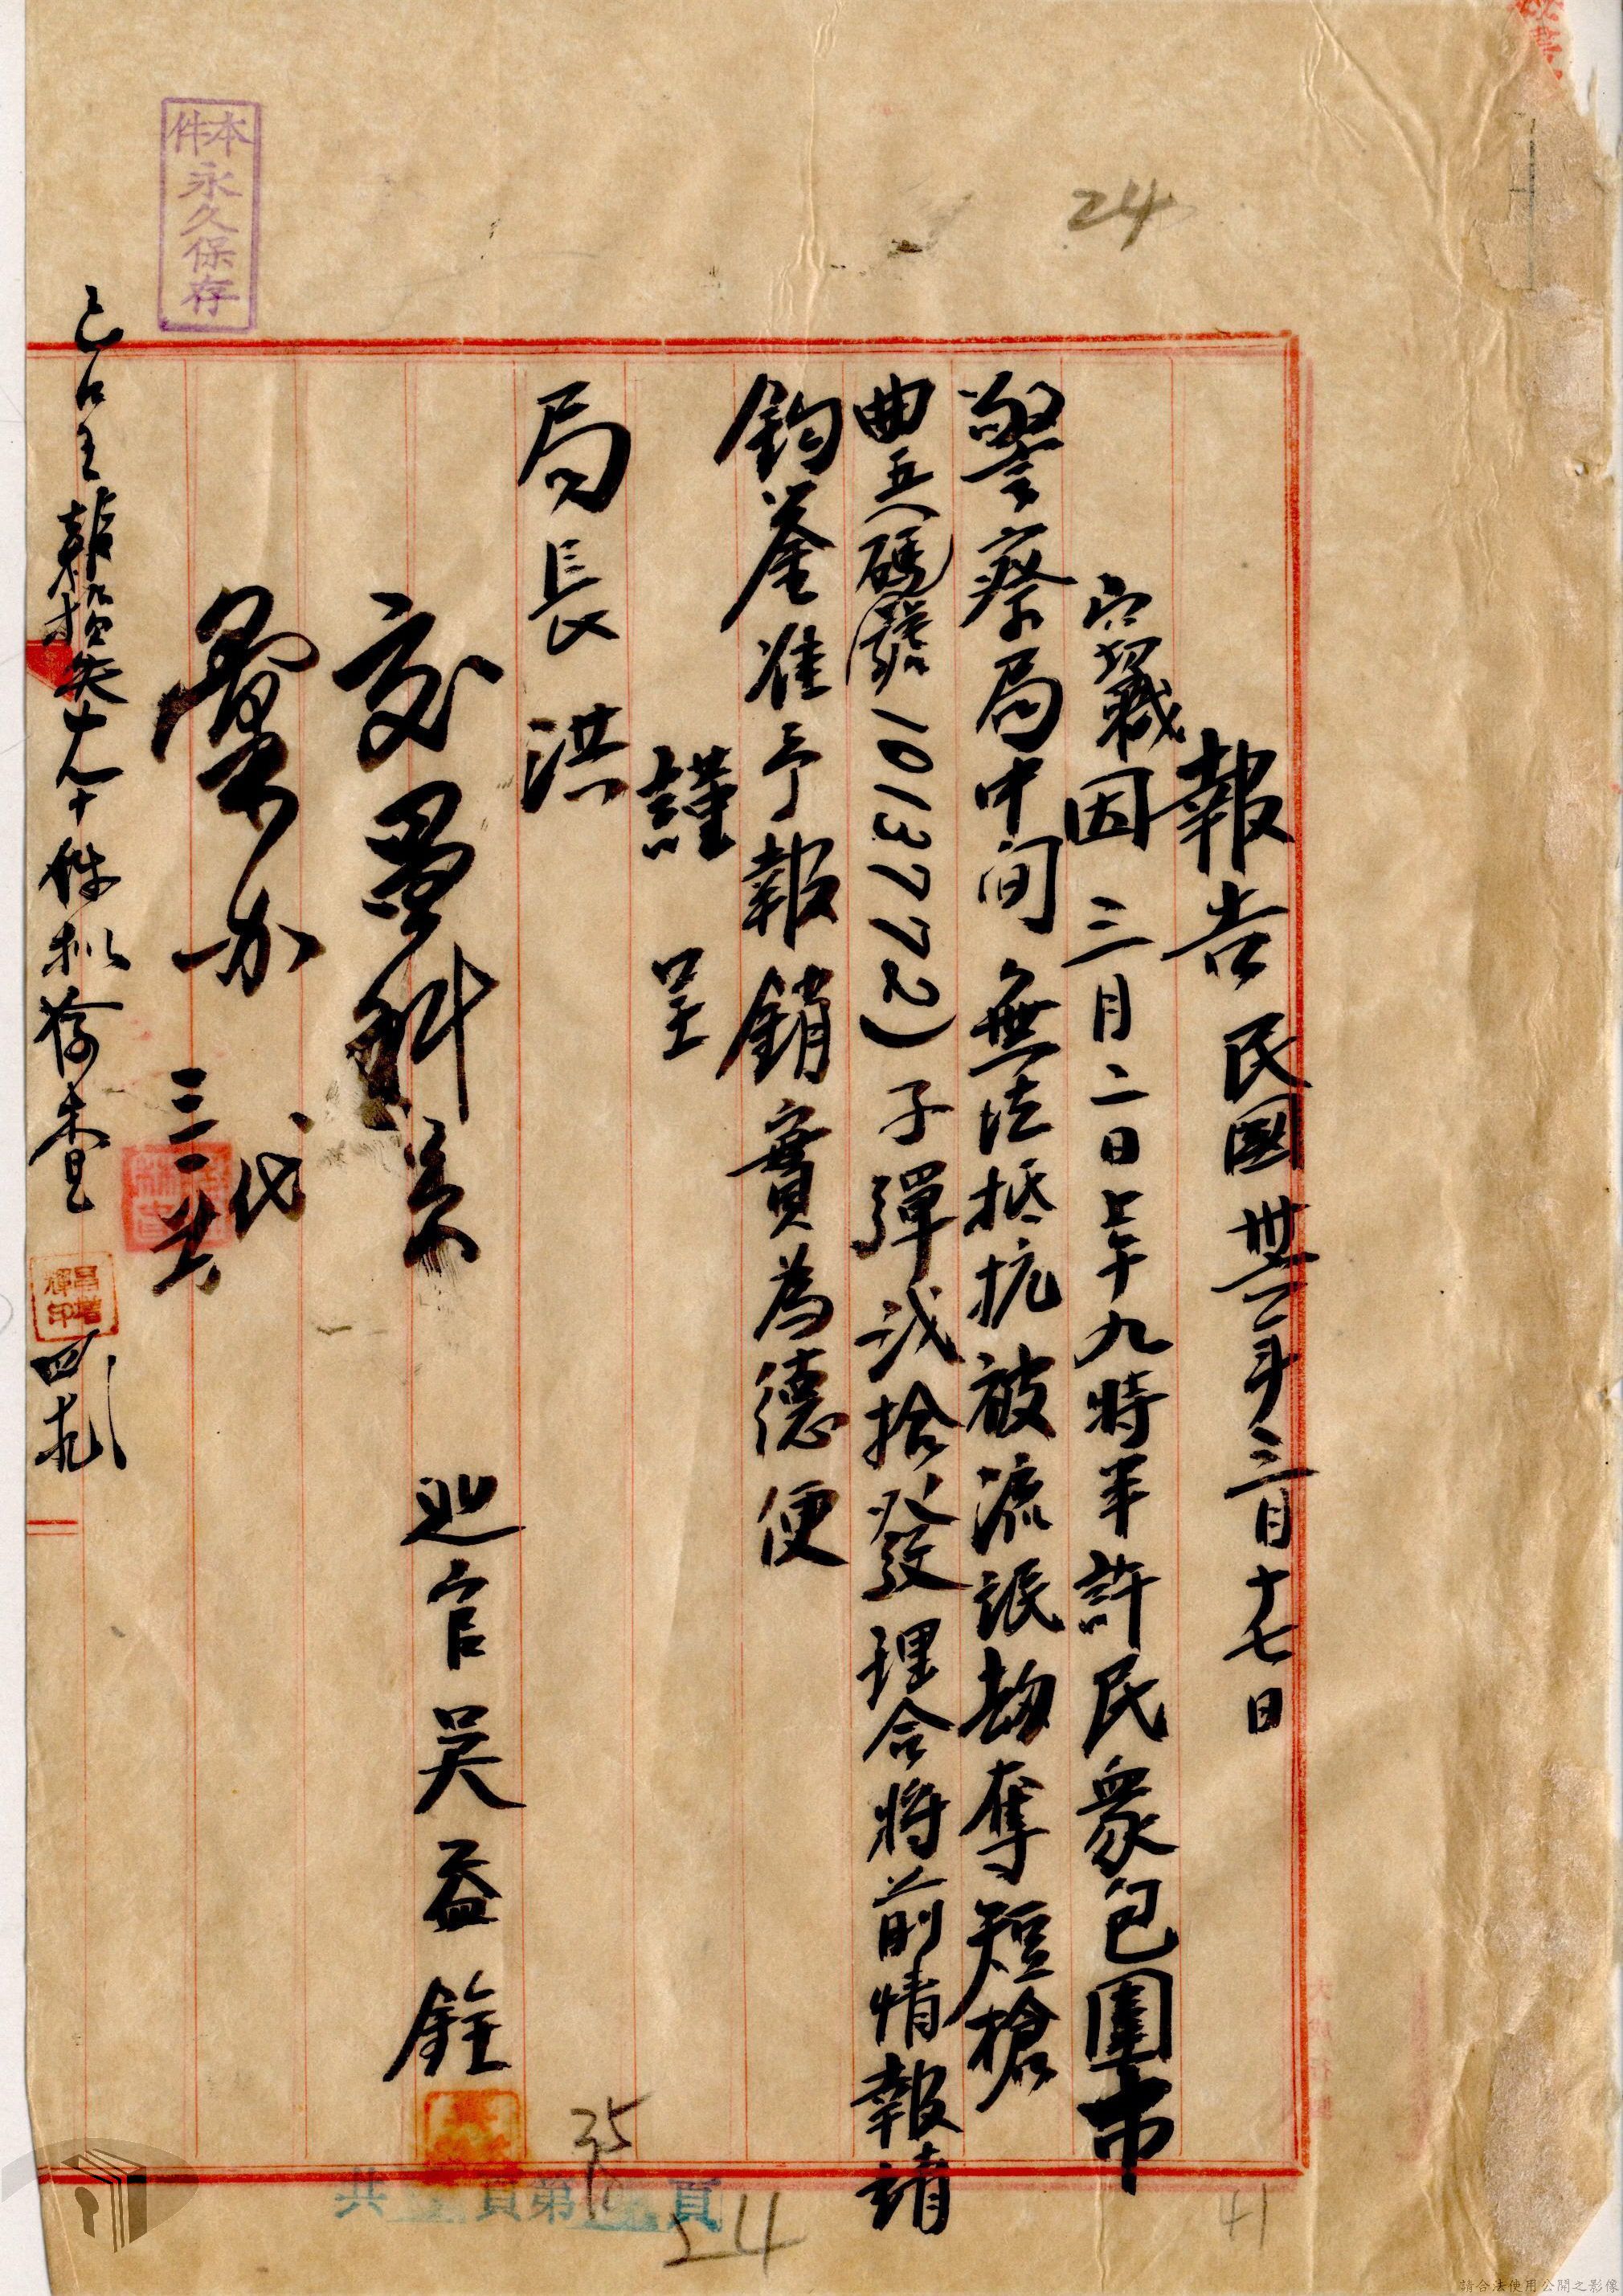 報告 民國卅六年三月十七日
竊職因三月二日上午九時半許民眾包圍市
警察局中間無法抵抗被流氓劫奪短槍
曲五(碼號1013772)子彈弍拾發理合將前情報請
鈞鑒准予報銷實為德便
謹
呈
局長洪
巡官吳益銓
代
本件永久保存
24
35
24
41
共 頁第 頁
請合法使用公開之影像